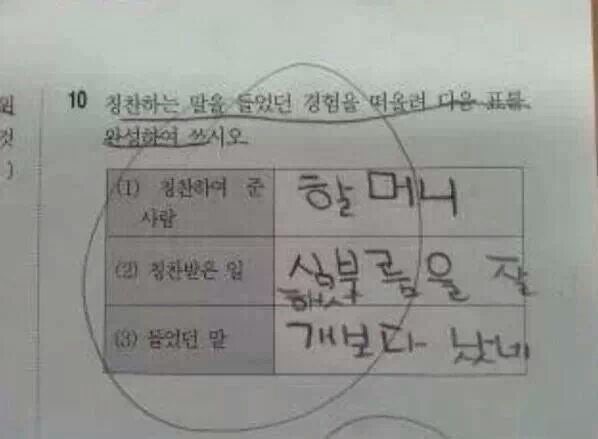 원
것
)
10 칭찬하는 말을 들었던 경험을 떠올려 다음 표를
완성하여 쓰시오
(1) 칭찬하여 준
사람
할머니
(2) 칭찬받은 일
심부름을 잘
했
(3) 들었던 말
개보다 낫네